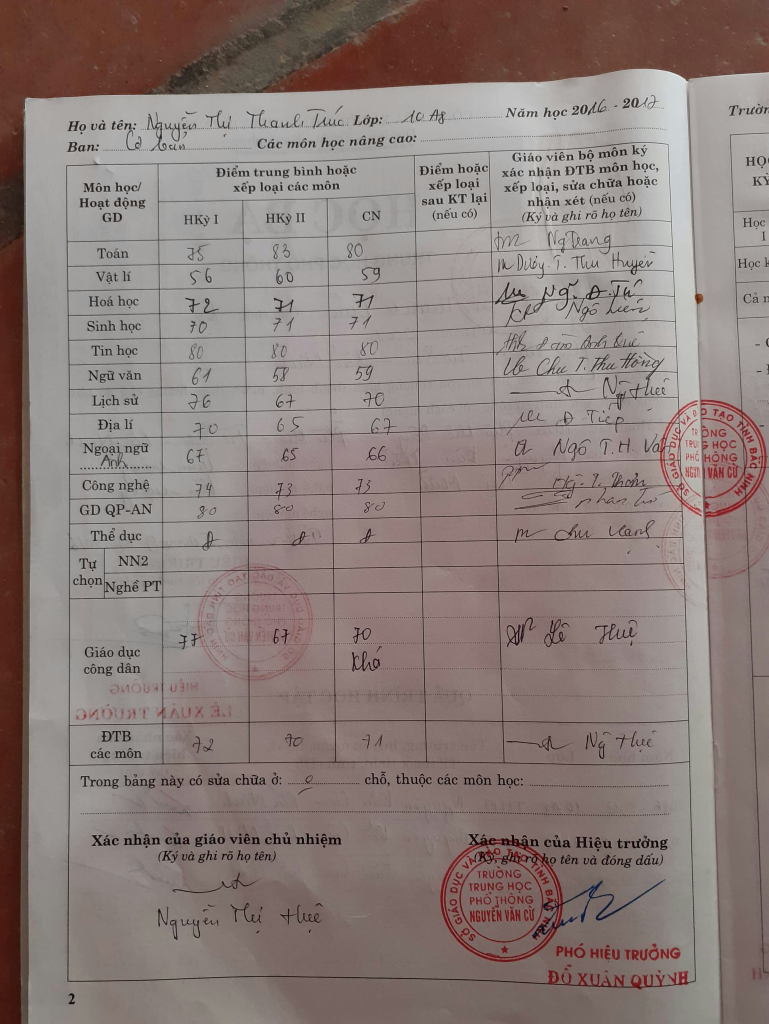 Họ và tên: Nguyễn Thị Thanh Trúc Lớp: 10 A8 Năm học 2016 - 2017
Ban: Cơ bản Các môn học nâng cao:
Môn học/ Hoạt động GD
Điểm trung bình hoặc xếp loại các môn
HKỳ I HKỳ II CN
Điểm hoặc xếp loại sau KT lại (nếu có)
Giáo viên bộ môn ký xác nhận ĐTB môn học, xếp loại, sửa chữa hoặc nhận xét (nếu có) (Ký và ghi rõ họ tên)
Toán 75 83 80 Ng Trang
Vật lí 56 60 59 T. Thu Huyền
Hoá học 72 71 71 Ng. Đ. Tú
Sinh học 70 71 71 Ngô Liên
Tin học 80 80 80
Ngữ văn 61 58 59 Chu T. Thu Hồng
Lịch sử 76 67 70 Ng Huê
Địa lí 70 65 67 Đ Tiếp
Ngoại ngữ Anh 67 65 66 Ngô T. H. Vân
Công nghệ 74 73 73
GD QP-AN 80 80 80
Thể dục đ đ đ Chu
Tự chọn
NN2
Nghề PT
Giáo dục công dân 77 67 70 Khá Lê Huệ
ĐTB các môn 72 70 71 Ng Huê
Trong bảng này có sửa chữa ở: 0 chỗ, thuộc các môn học:
Xác nhận của giáo viên chủ nhiệm
(Ký và ghi rõ họ tên)
Nguyễn Thị Huệ
Xác nhận của Hiệu trưởng
(Ký, ghi rõ họ tên và đóng dấu)
SỞ GIÁO DỤC VÀ ĐÀO TẠO TỈNH BẮC NINH
TRƯỜNG
TRUNG HỌC
PHỔ THÔNG
NGUYỄN VĂN CỪ
PHÓ HIỆU TRƯỞNG
ĐỖ XUÂN QUỲNH
2
SỞ GIÁO DỤC VÀ ĐÀO TẠO TỈNH BẮC NINH
TRƯỜNG
TRUNG HỌC
PHỔ THÔNG
NGUYỄN VĂN CỪ
Trườn
HỌC
KỲ
Học
I
Học k
Cả n